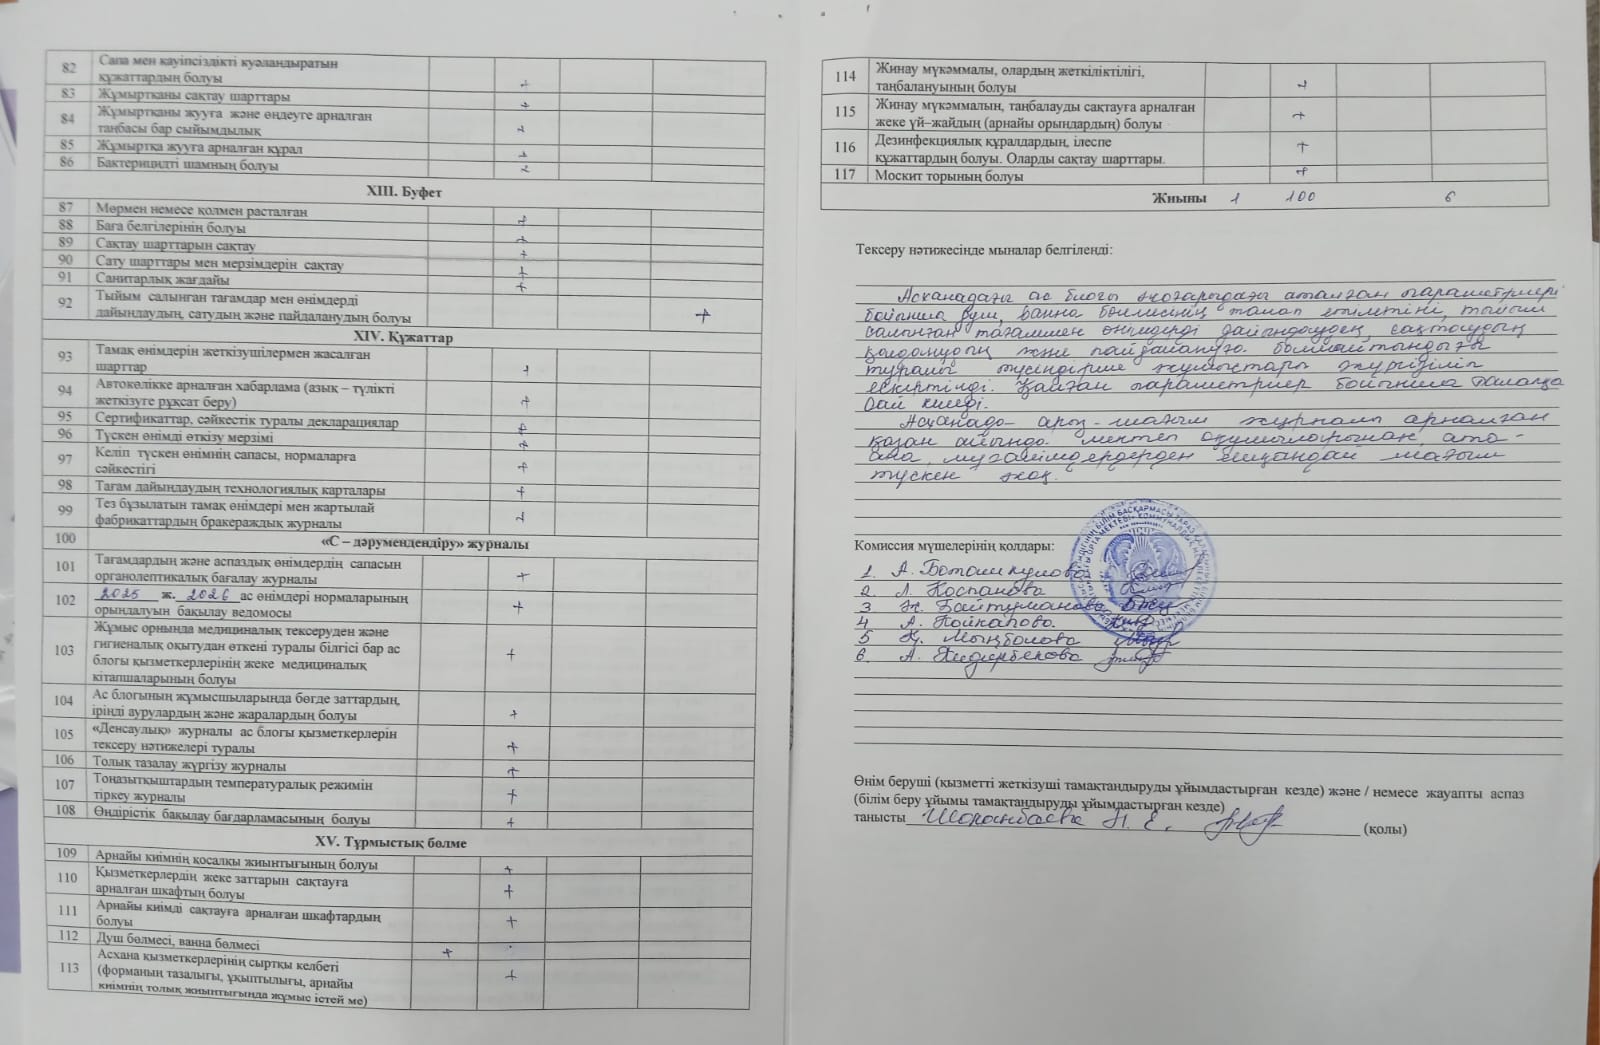 82 Сапа мен қауіпсіздікті куәландыратын
құжаттардың болуы +
83 Жұмыртқаны сақтау шарттары +
84 Жұмыртқаны жууға және өңдеуге арналған
таңбасы бар сыйымдылық +
85 Жұмыртқа жууға арналған құрал +
86 Бактерицидті шамның болуы +
XIII. Буфет
87 Мөрмен немесе қолмен расталған +
88 Баға белгілерінің болуы +
89 Сақтау шарттарын сақтау +
90 Сату шарттары мен мерзімдерін сақтау +
91 Санитарлық жағдайы +
92 Тыйым салынған тағамдар мен өнімдерді
дайындаудың, сатудың және пайдаланудың болуы +
XIV. Құжаттар
93 Тамақ өнімдерін жеткізушілермен жасалған
шарттар +
94 Автокөлікке арналған хабарлама (азық – түлікті
жеткізуге рұқсат беру) +
95 Сертификаттар, сәйкестік туралы декларациялар +
96 Түскен өнімді өткізу мерзімі +
97 Келіп түскен өнімнің сапасы, нормаларға
сәйкестігі +
98 Тағам дайындаудың технологиялық карталары +
99 Тез бұзылатын тамақ өнімдері мен жартылай
фабрикаттардың бракераждық журналы +
100 «С – дәрумендендіру» журналы
101 Тағамдардың және аспаздық өнімдердің сапасын
органолептикалық бағалау журналы +
102 2025 ж. 2026 ас өнімдері нормаларының
орындалуын бақылау ведомосы +
103 Жұмыс орнында медициналық тексеруден және
гигиеналық оқытудан өткені туралы білгісі бар ас
блогы қызметкерлерінің жеке медициналық
кітапшаларының болуы +
104 Ас блогының жұмысшыларында бөгде заттардың,
іріңді аурулардың және жаралардың болуы +
105 «Денсаулық» журналы ас блогы қызметкерлерін
тексеру нәтижелері туралы +
106 Толық тазалау жүргізу журналы +
107 Тоңазытқыштардың температуралық режимін
тіркеу журналы +
108 Өндірістік бақылау бағдарламасының болуы +
XV. Тұрмыстық бөлме
109 Арнайы киімнің қосалқы жиынтығының болуы +
110 Қызметкерлердің жеке заттарын сақтауға
арналған шкафтың болуы +
111 Арнайы киімді сақтауға арналған шкафтардың
болуы +
112 Душ бөлмесі, ванна бөлмесі +
113 Асхана қызметкерлерінің сыртқы келбеті
(форманың тазалығы, ұқыптылығы, арнайы
киімнің толық жиынтығында жұмыс істей ме) +
114 Жинау мүкәммалы, олардың жеткіліктілігі,
таңбалануының болуы +
115 Жинау мүкәммалын, таңбалауды сақтауға арналған
жеке үй–жайдың (арнайы орындардың) болуы +
116 Дезинфекциялық құралдардың, ілеспе
құжаттардың болуы. Оларды сақтау шарттары. +
117 Москит торының болуы +
Жиыны 1 100 6
Тексеру нәтижесінде мыналар белгіленді:
Асханадағы ас блогы жоғарыдағы аталған параметрлері
бойынша душ, ванна бөлмесінің талап етілетіні, тыйым
салынған тағаммен өнімдерді дайындаудың, сақтаудың
қолданудың және пайдалануға болмайтындығы
туралы түсіндірме жұмыстары жүргізіліп
ескертілді. Қалған параметрлер бойынша талапқа
сай келеді.
Асханада арыз-шағым журналы арналған
қазан айында мектеп оқушыларынан, ата-
ана, мұғалімдерден ешқандай шағым
түскен жоқ.
Комиссия мүшелерінің қолдары:
1. А. Боташкулова
2. Л. Коспанова
3 Ж. Байтуманова
4 А. Пойкапова.
5 К. Мыңболова
6. А. Хидирбекова
Өнім беруші (қызметті жеткізуші тамақтандыруды ұйымдастырған кезде) және / немесе жауапты аспаз
(білім беру ұйымы тамақтандыруды ұйымдастырған кезде)
танысты Шоранбаева Н. Е. (қолы)